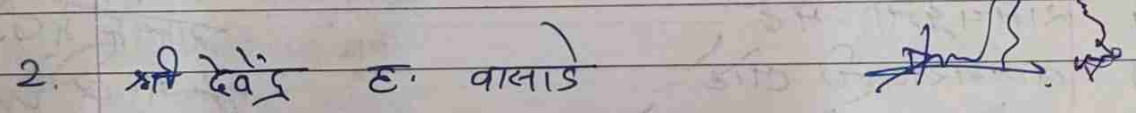 2. श्री देवेंद्र ह. वासाडे